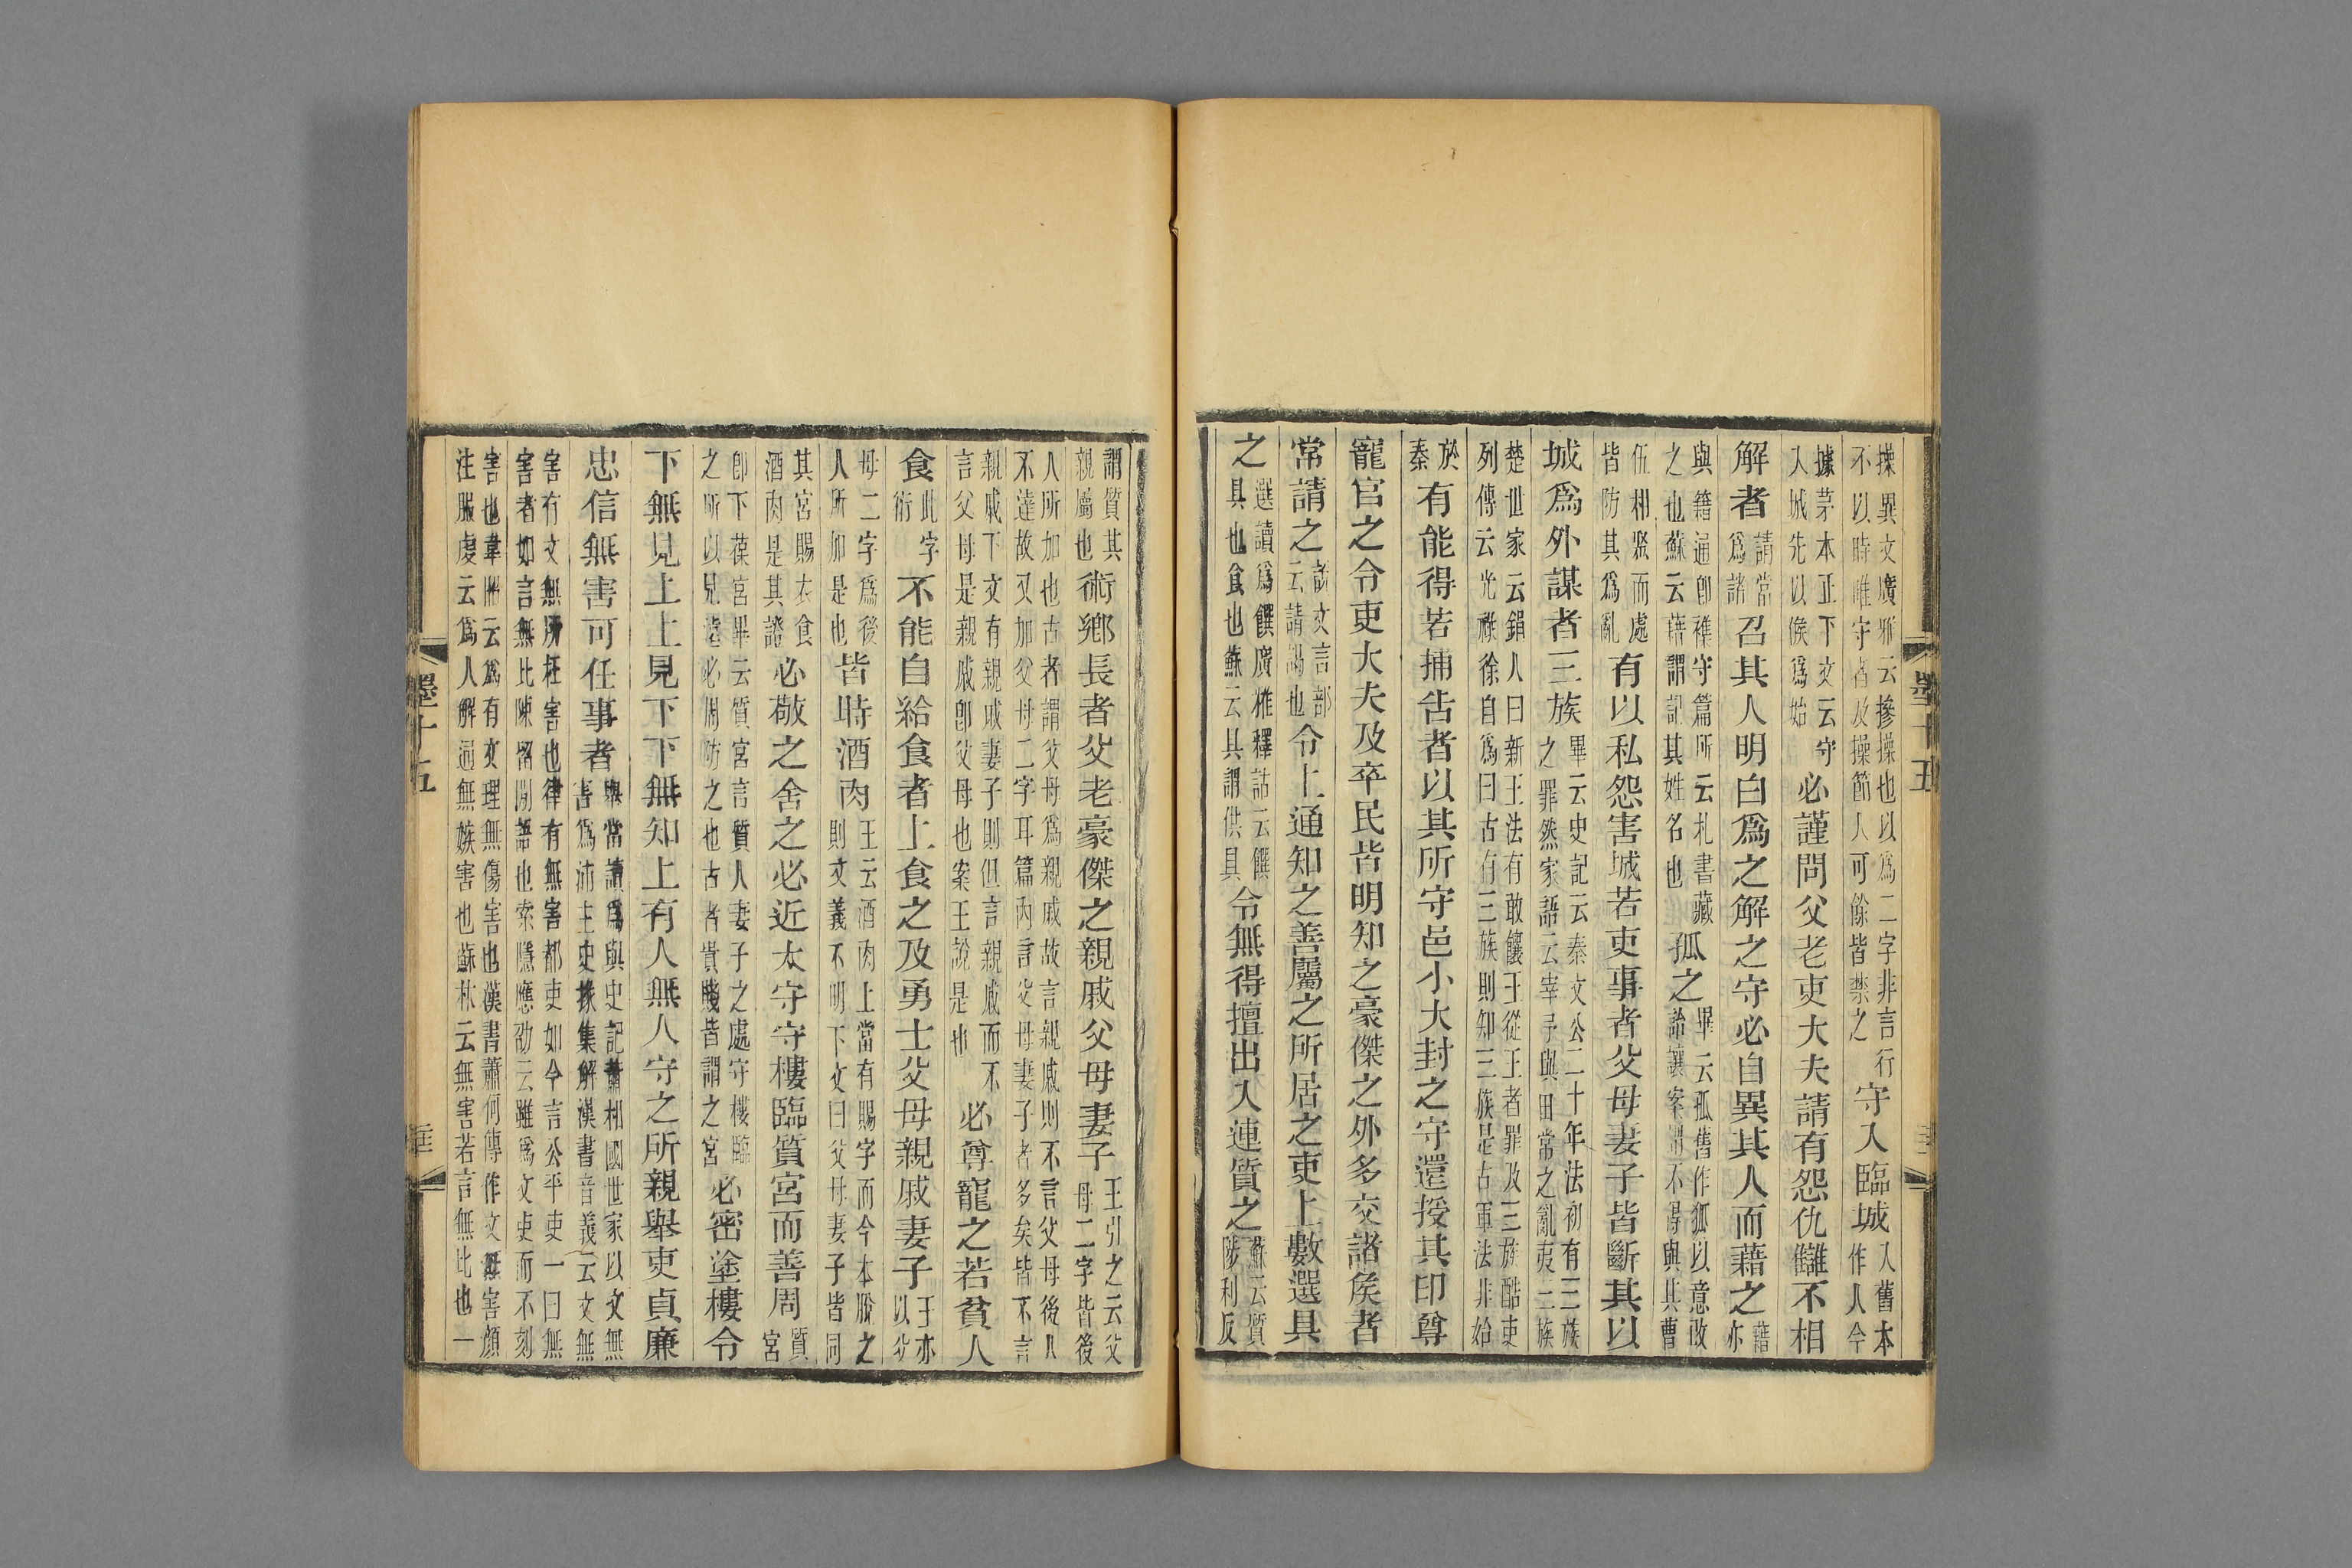 操異文廣雅云摻操也以爲二字非言行
不以時唯守者及操節人可餘皆禁之
守入臨城
入舊本
作人今
據茅本正下文云守
入城先以候爲始
必謹問父老吏大夫請有怨仇讎不相
解者
請當
爲諸
召其人明白爲之解之守必自異其人而藉之
藉
亦
與籍通卽雜守篇所云札書藏
之也蘇云藉謂記其姓名也
孤之
畢云孤舊作狐以意改
詒讓案謂不得與其曹
伍相聚而處
皆防其爲亂
有以私怨害城若吏事者父母妻子皆斷其以
城爲外謀者三族
畢云史記云秦文公二十年法初有三族
之罪然家語云宰予與田常之亂夷三族
楚世家云鋗人曰新王法有敢饟王從王者罪及三族酷吏
列傳云光祿徐自爲曰古有三族則知三族是古軍法非始
於
秦
有能得若捕告者以其所守邑小大封之守還授其印尊
寵官之令吏大夫及卒民皆明知之豪傑之外多交諸矦者
常請之
說文言部
云請謁也
令上通知之善屬之所居之吏上數選具
之
選讀爲饌廣雅釋詁云饌
具也食也蘇云具謂供具
令無得擅出入連質之
蘇云質
陟利反
墨十五
謂質其
親屬也
術鄉長者父老豪傑之親戚父母妻子
王引之云父
母二字皆後
人所加也古者謂父母爲親戚故言親戚則不言父母後人
不達故又加父母二字耳篇內言父母妻子者多矣皆不言
親戚下文有親戚妻子則但言親戚而不
言父母是親戚卽父母也案王說是也
必尊寵之若貧人
食
此字
衍
不能自給食者上食之及勇士父母親戚妻子
王亦
以父
母二字爲後
人所加是也
皆時酒肉
王云酒肉上當有賜字而今本脫之
則文義不明下文曰父母妻子皆同
其宮賜衣食
酒肉是其證
必敬之舍之必近太守守樓臨質宮而善周
質
宮
卽下葆宮畢云質宮言質人妻子之處守樓臨
之所以見遠必周防之也古者貴賤皆謂之宮
必密塗樓令
下無見上上見下下無知上有人無人守之所親舉吏貞廉
忠信無害可任事者
舉當讀爲與史記蕭相國世家以文無
害爲沛主吏掾集解漢書音義云文無
害有文無所枉害也律有無害都吏如今言公平吏一曰無
害者如言無比陳留閒語也索隱應劭云雖爲文吏而不刻
害也韋昭云爲有文理無傷害也漢書蕭何傳作文毋害顏
注服虔云爲人解通無嫉害也蘇林云無害若言無比也一
墨十五